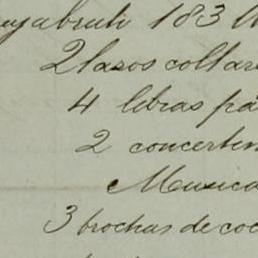 183
2 lasos collar
4 libras pa
2 concertin
Musica
3 brochas de coc